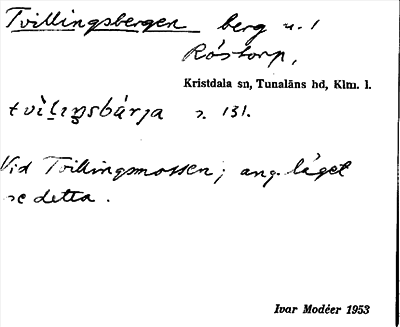 Tvillingsbergen berg u. l
Röstorp,
Kristdala sn, Tunaläns hd, Klm. l.
tvìlıŋsbárja s. 131.
Vid Tvillingsmossen; ang. läget
se detta.
Ivar Modéer 1953